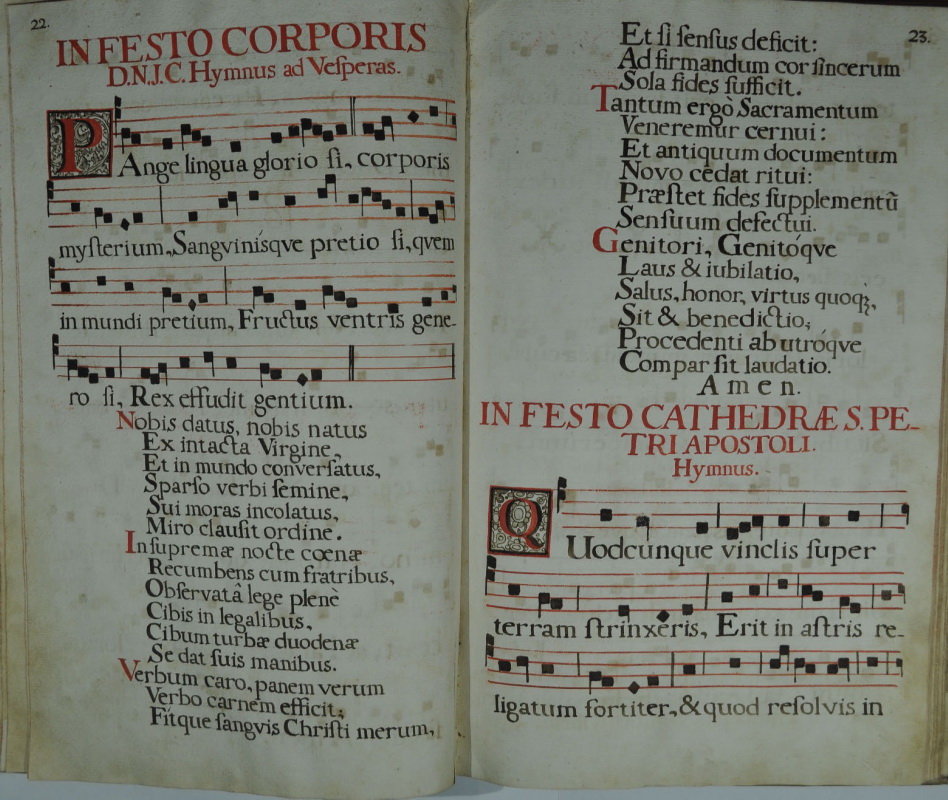 22.
IN FESTO CORPORIS
D.N.J.C. Hymnus ad Veſperas.
PAnge lingua glorio ſi, corporis
myſterium, Sangvinísqve pretio ſi, qvem
in mundi pretium, Fructus ventris gene-
ro ſi, Rex effudit gentium.
Nobis datus, nobis natus
Ex intacta Virgine,
Et in mundo converſatus,
Sparſo verbi ſemine,
Sui moras incolatus,
Miro clauſit ordine.
In ſupremæ nocte cœnæ
Recumbens cum fratribus,
Obſervatâ lege plenè
Cibis in legalibus,
Cibum turbæ duodenæ
Se dat ſuis manibus.
Verbum caro, panem verum
Verbo carnem efficit;
Fitque ſangvis Chriſti merum,
23.
Et ſi ſenſus deficit:
Ad firmandum cor ſincerum
Sola fides ſufficit.
Tantum ergò Sacramentum
Veneremur cernui:
Et antiquum documentum
Novo cedat ritui:
Præſtet fides ſupplementũ
Senſuum defectui.
Genitori, Genitóqve
Laus & iubilatio,
Salus, honor, virtus quoqꝫ,
Sit & benedictio;
Procedenti ab utróqve
Compar ſit laudatio.
Amen.
IN FESTO CATHEDRÆ S. PE-
TRI APOSTOLI.
Hymnus.
QUodcunque vinclis ſuper
terram ſtrinxeris, Erit in aſtris re-
ligatum fortiter, & quod reſolvis in